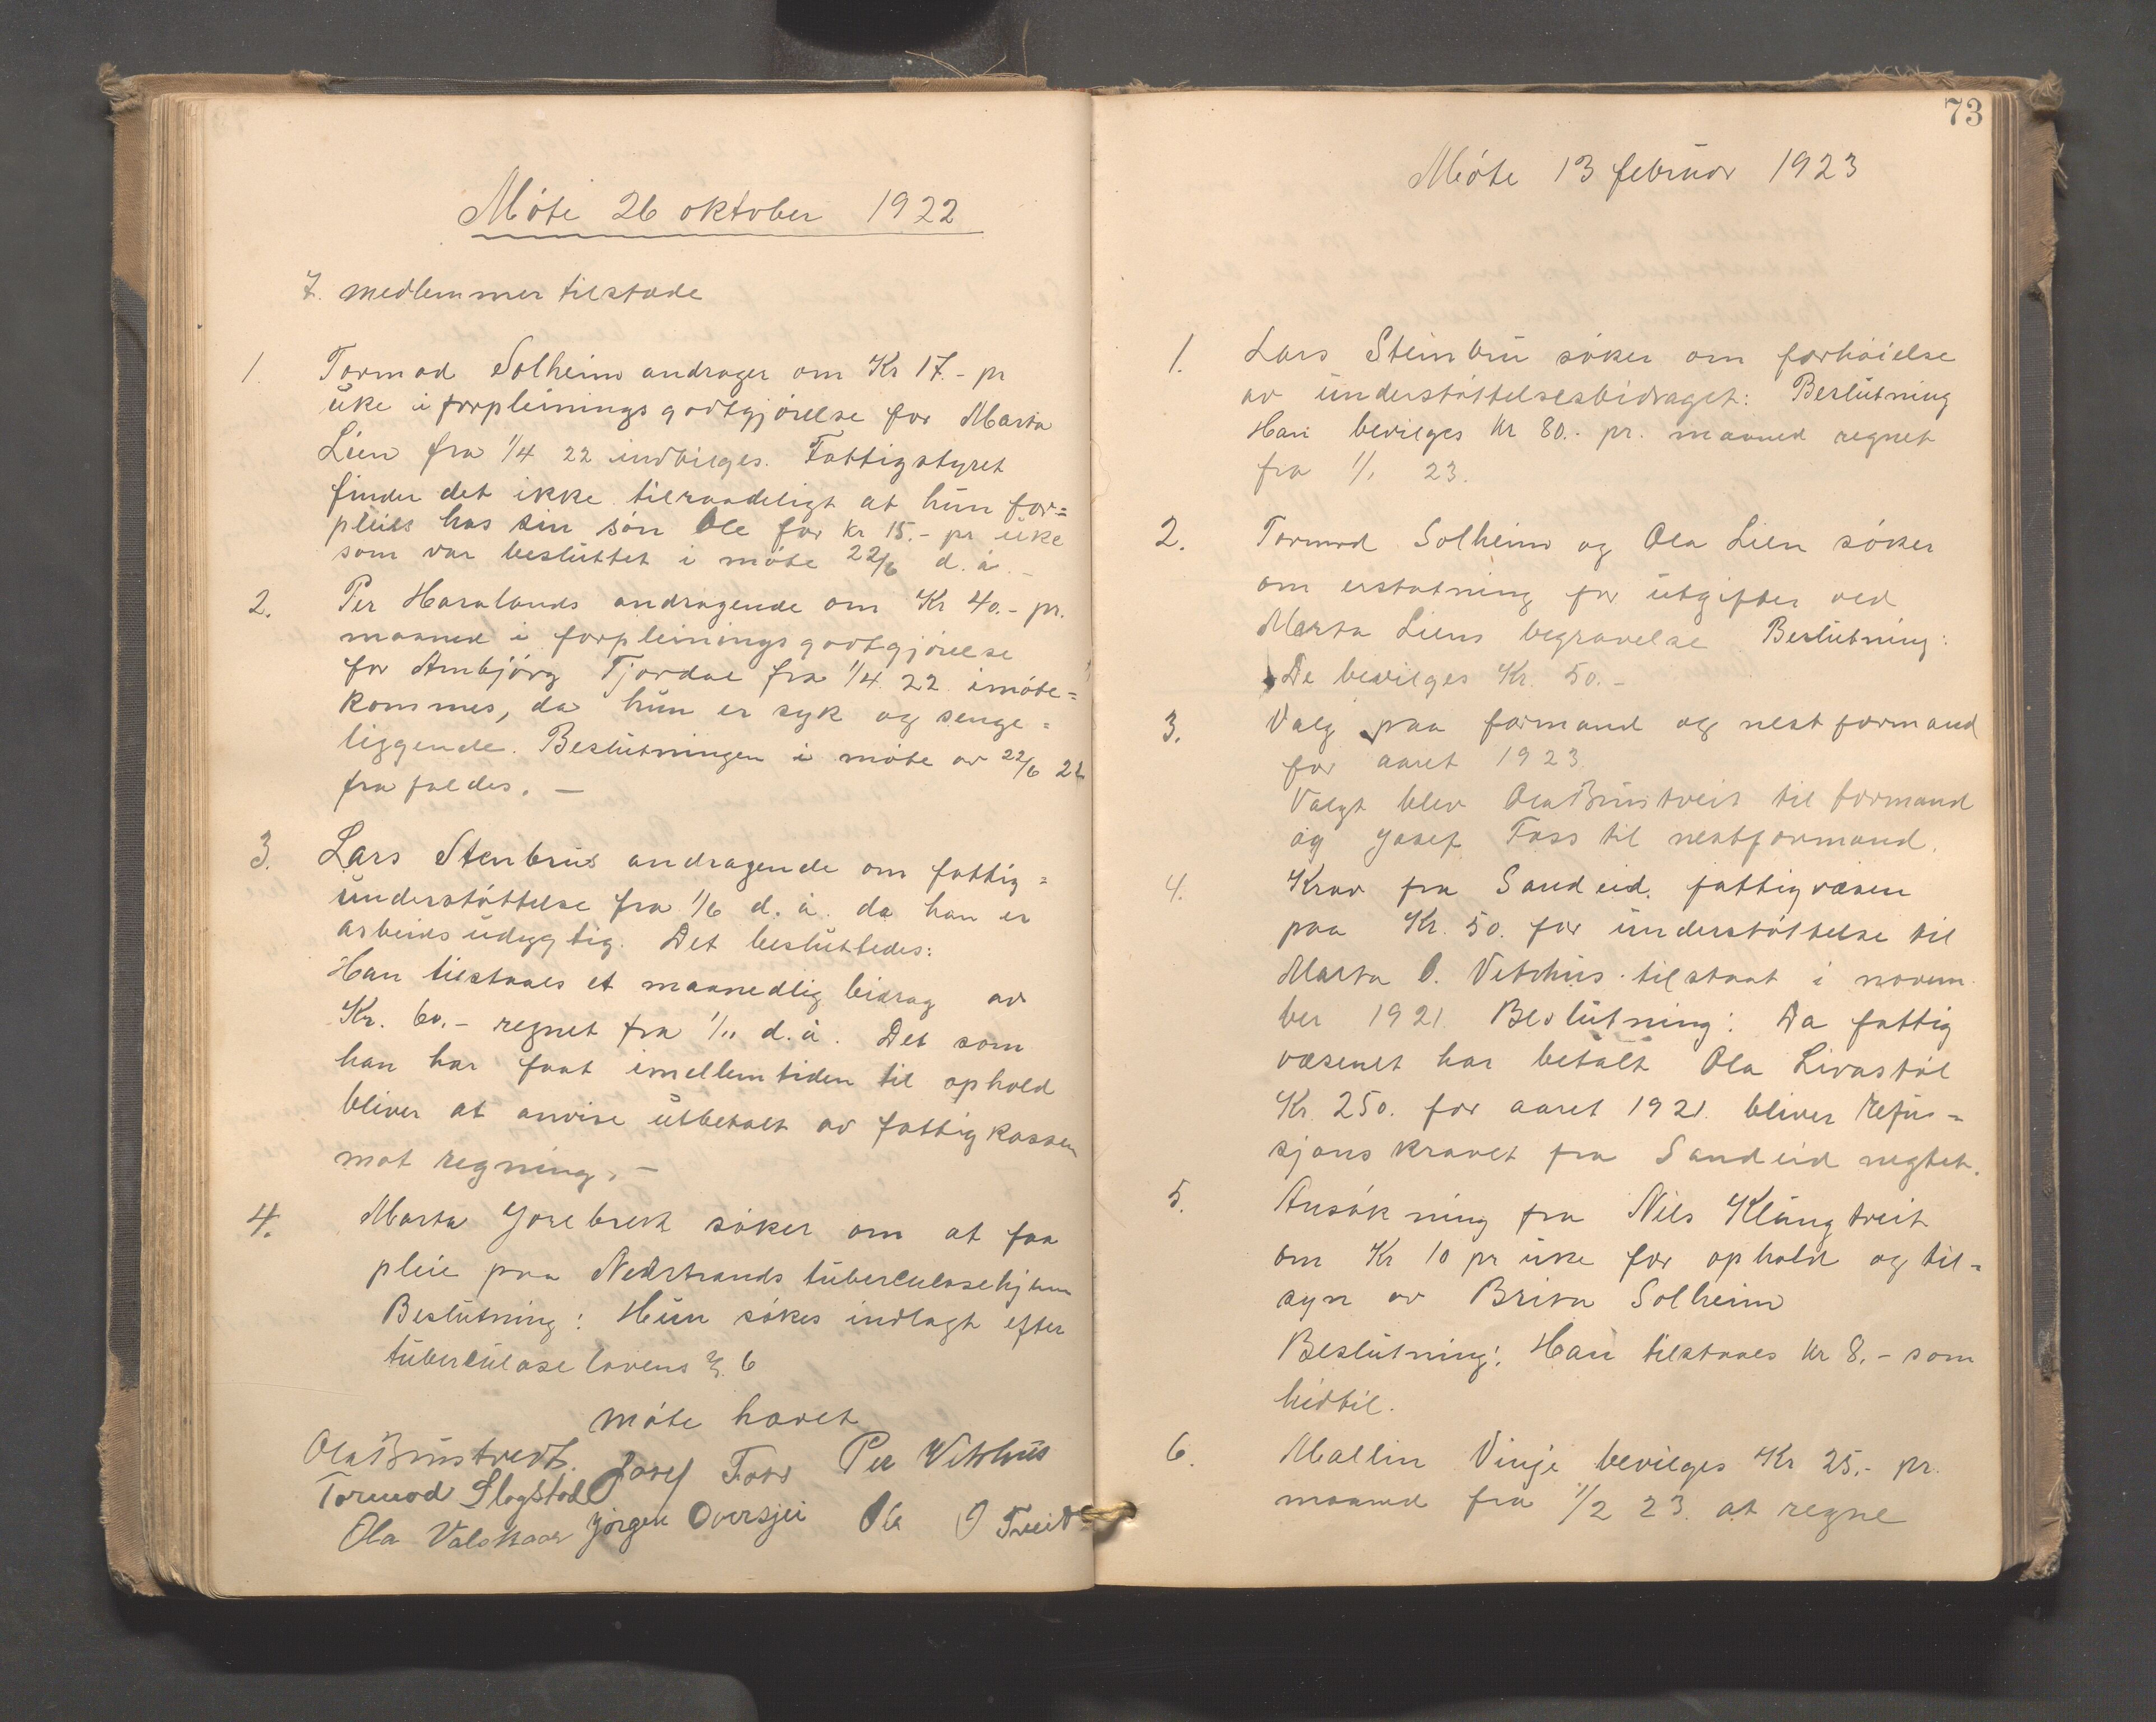 Møte 26 oktober 1922
7. medlemmer tilstæde
1. Tormod Solheim andrager om Kr 17.- pr
uke i forpleiningsgodtgjørelse for Marta
Lien fra 1/4 22 indvilges. Fattigstyret
finder det ikke tilraadeligt at hun for=
pleies hos sin søn Ole for kr 15.- pr uke
som var besluttet i møte 22/6 d.å.-
2. Per Haralands andragende om Kr 40.- pr.
maaned i forpleiningsgodtgjørelse
for Ambjørg Tjordal fra 1/4 22 imøte=
kommes, da hun er syk og senge=
liggende. Beslutningen i møte av 22/6 22
frafaldes. -
3. Lars Stenbrus andragende om fattig=
understøttelse fra 1/6 d.å. da han er
arbeidsudygtig. Det besluttedes:
Han tilstaaes et maanedlig bidrag av
Kr. 60.- regnet fra 1/11 d.å. Det som
han har faat imellemtiden til ophold
bliver at anvise utbetalt av fattigkassen
mot regning. -
4. Marta Jorebrek søker om at faa
pleie paa Nedstrands tuberculosehjem
Beslutning: Hun søkes indlagt efter
tuberculoselovens § 6
møte hævet
Ola Brustveit. Josef Foss Per Vitshus
Tormod Slogstad
Ola Valskaar Jørgen Oversjei Ole O Tveit
73
Møte 13 februar 1923
1. Lars Steinbru søker om forhøielse
av understøttelsesbidraget: Beslutning
Han bevilges Kr 80.- pr. maaned regnet
fra 1/1 23.
2. Tormod Solheim og Ola Lien søker
om erstatning for utgifter ved
Marta Liens begravelse Beslutning:
De bevilges Kr. 50.-
3. Valg paa formand og nestformand
for aaret 1923.
Valgt blev Ola Brustveit til formand
og Josef Foss til nestformand.
4. Krav fra Sandeid fattigvæsen
paa Kr. 50. for understøttelse til
Marta O. Vitshus tilstaat i novem
ber 1921. Beslutning: Da fattig
væsenet har betalt Ola Livastøl
Kr. 250. for aaret 1921. bliver refu=
sjons kravet fra Sandeid negtet.
5. Ansøkning fra Nils Klungtveit
om Kr 10 pr uke for ophold og til=
syn av Brita Solheim
Beslutning: Han tilstaaes kr 8.- som
hidtil.
6. Mallin Vinje bevilges Kr 25.- pr.
maaned fra 1/2 23. at regne